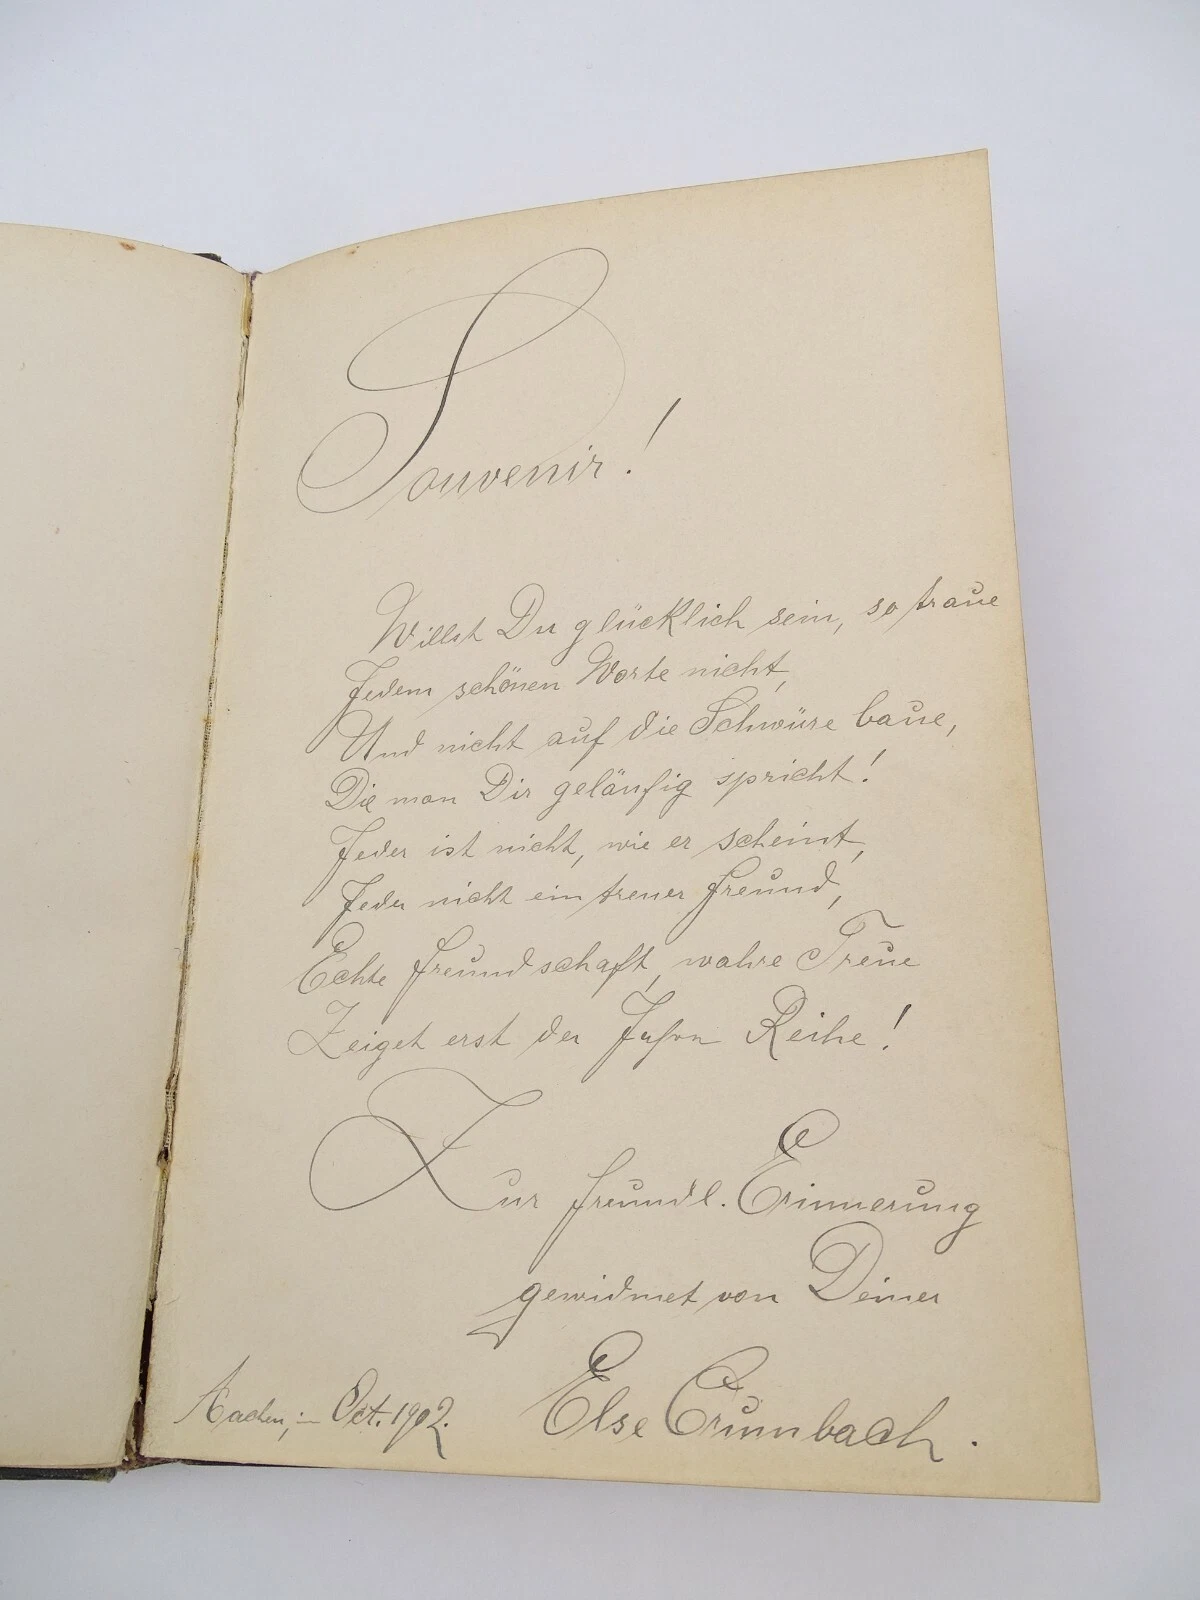 Souvenir!
Willst Du glücklich sein, so traue
Jedem schönen Worte nicht,
Und nicht auf die Schwüre baue,
Die man Dir geläufig spricht!
Jeder ist nicht, wie er scheint,
Jeder nicht ein treuer Freund,
Echte Freundschaft, wahre Treue
Zeiget erst der Jahre Reihe!
Zur freundl. Erinnerung
gewidmet von Deiner
Else Crumbach.
Aachen, :- Oct. 1902.